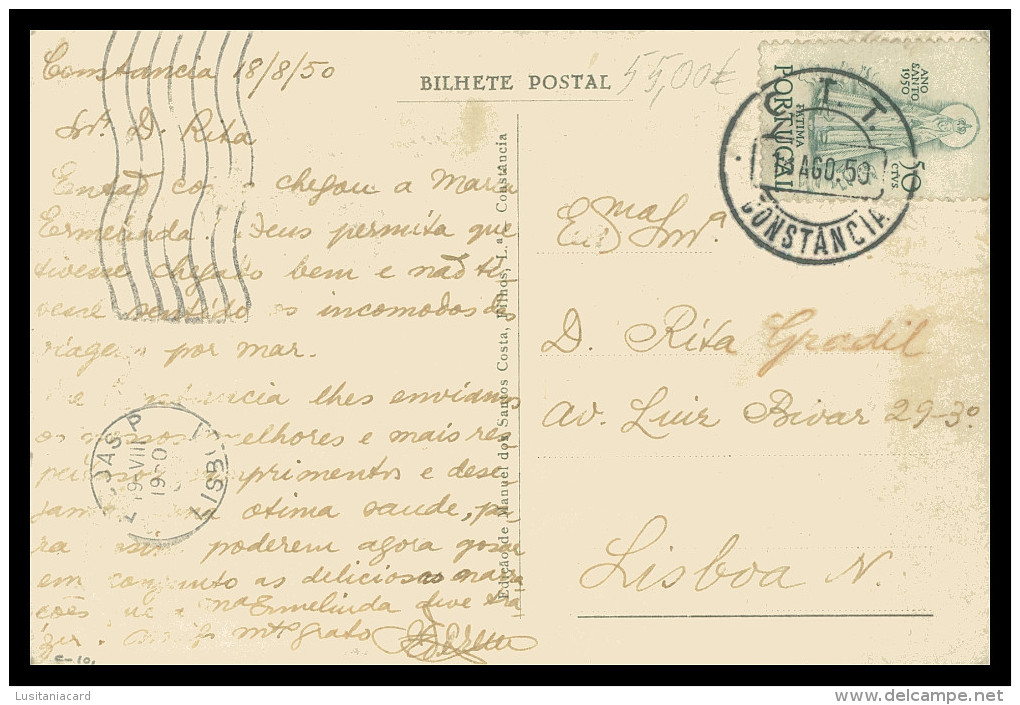 Constancia 18/8/50
BILHETE POSTAL
55,00€
Snrª. D. Rita
Então co o chegou a Maria
Ermelinda? Deus permita que
tivesse chegado bem e não ti
vesse sentido os incomodos da
viagem por mar.
De Constancia lhes enviamos
os nossos melhores e mais res
peitosos cumprimentos e dese
jamos otima saude, pa
ra assim poderem agora gosar
em conjunto as deliciosas
ções Ermelinda deve tra
zer. mtº grato
c-10.
Edição de Manuel dos Santos Costa, Filhos, L.ª Constância
ANO
SANTO
1950
FÁTIMA
PORTUGAL
50
CTVS
C. T. T.
18 AGO. 50
CONSTANCIA
Exma Snrª.
D. Rita Gradil
Av. Luiz Bivar 29-3º
Lisboa N.
19 VIII
1950
LISBOA
Lusitaniacard
http://www.delcampe.net